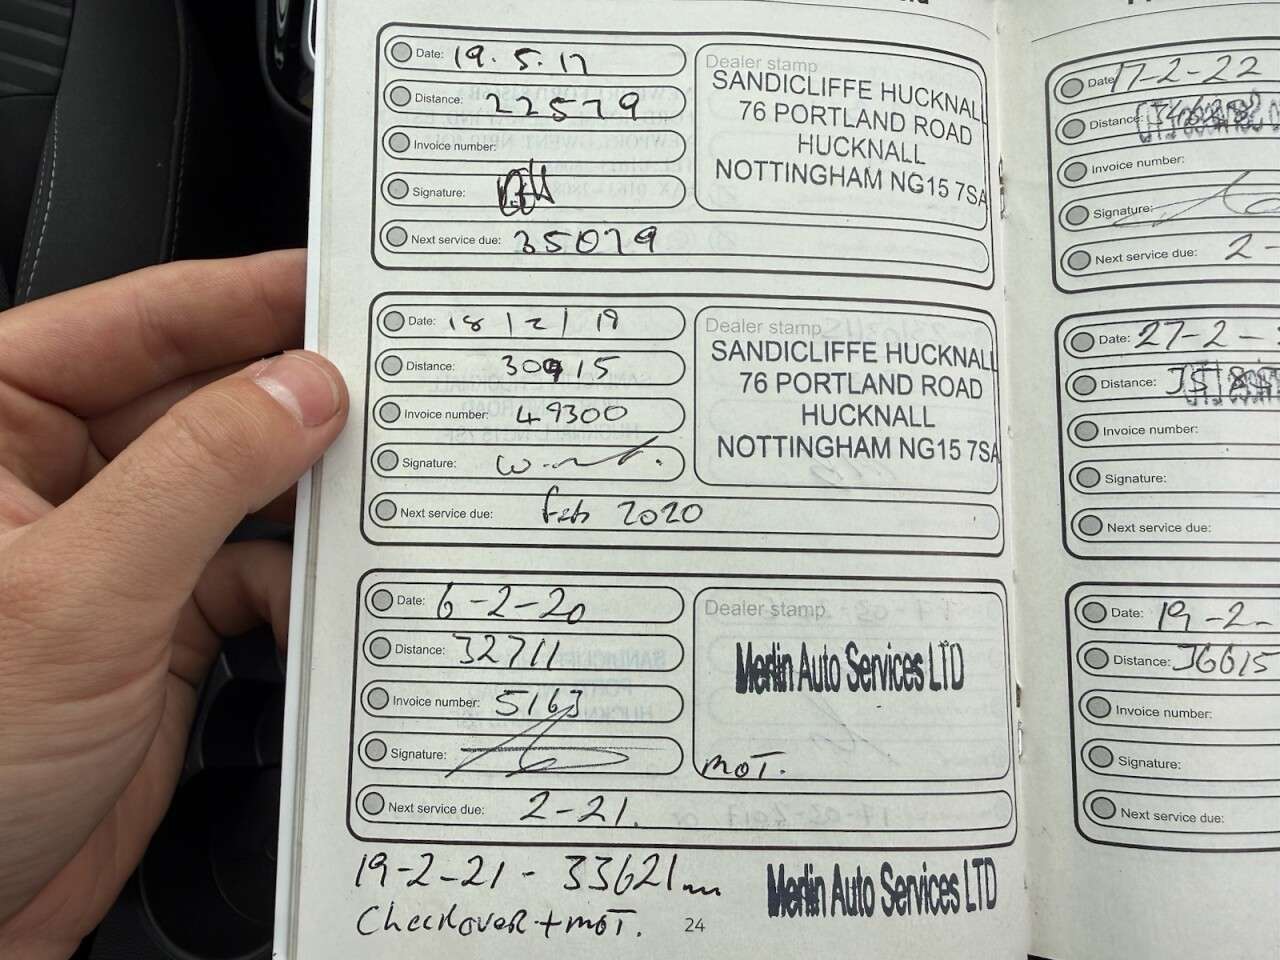 Date: 19.5.17
Distance: 22579
Invoice number:
Signature:
Next service due: 35079
Dealer stamp
SANDICLIFFE HUCKNALL
76 PORTLAND ROAD
HUCKNALL
NOTTINGHAM NG15 7SA
Date: 18/2/19
Distance: 30915
Invoice number: 49300
Signature:
Next service due: Feb 2020
Dealer stamp
SANDICLIFFE HUCKNALL
76 PORTLAND ROAD
HUCKNALL
NOTTINGHAM NG15 7SA
Date: 6-2-20
Distance: 32711
Invoice number: 5163
Signature:
Next service due: 2-21.
Dealer stamp
Merlin Auto Services LTD
MOT.
19-2-21 - 33621m
Merlin Auto Services LTD
Checkover + MOT.
24
Date 17-2-22
Distance:
Invoice number:
Signature:
Next service due: 2-
Date: 27-2-
Distance:
Invoice number:
Signature:
Next service due:
Date: 19-2-
Distance: 36615
Invoice number:
Signature:
Next service due: